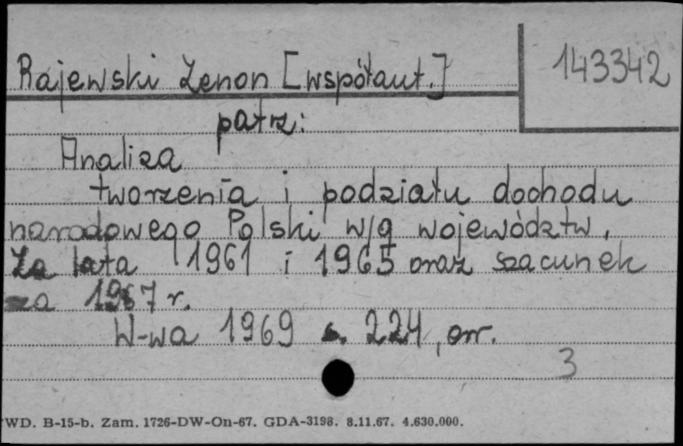 Rajewski Zenon [współaut.]
143342
patrz:
Analiza
tworzenia i podziału dochodu
narodowego Polski w/g województw,
Za lata 1961 i 1965 oraz szacunek
za 1967 r.
W-wa 1969 s. 224,
3
WD. B-15-b. Zam. 1726-DW-On-67. GDA-3198. 8.11.67. 4.630.000.